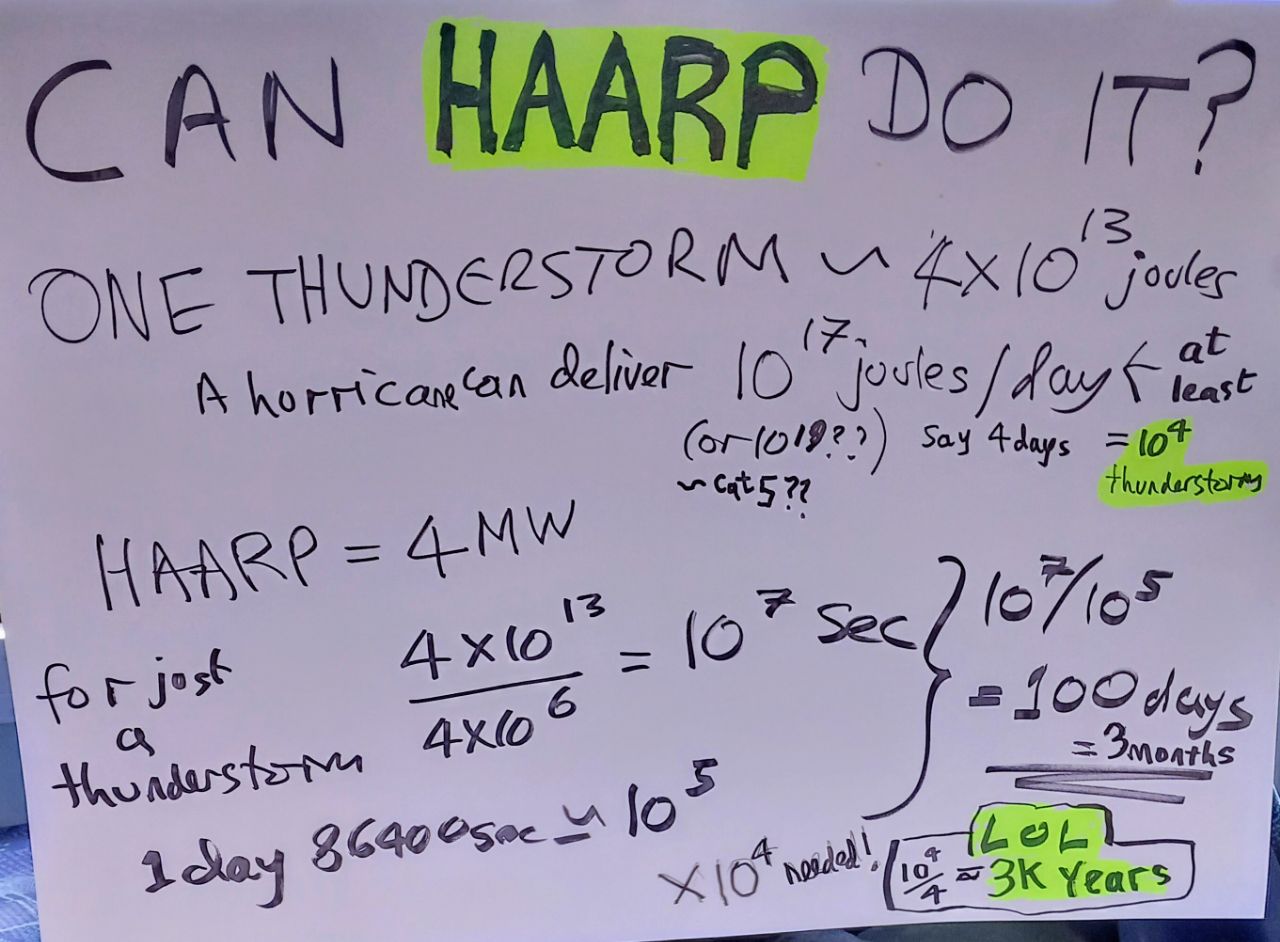 CAN HAARP DO IT?
ONE THUNDERSTORM ~ 4×10¹³ joules
A hurricane can deliver 10¹⁷ joules/day ← at least
(or 10¹⁹??) say 4 days = 10⁴ thunderstorms
~ cat 5??
HAARP = 4MW
for just a thunderstorm
4×10¹³ / 4×10⁶ = 10⁷ sec
1 day 86400sec ≃ 10⁵
} 10⁷/10⁵
= 100 days
= 3 months
×10⁴ needed!
LOL
10⁴/4 ≈ 3K Years